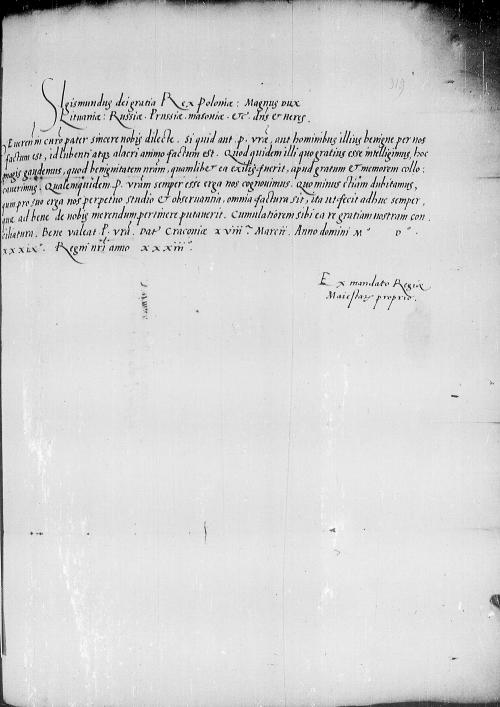 319
Sigismundus dei gratia Rex Poloniæ: Magnus Dux
Lituaniæ: Russiæ Prussiæ, masoniæ &c. dns & heres.
Reueren in chro pater sincere nobis dilecte. Si quid ant. p. vra, aut hominibus illius benigne per nos
factum est, id lubenti atq alacri animo factum est. Quod quidem illi quo gratius esse intelligimus, hoc
magis gaudemus, quod benignitatem nram, quamlibet ea exilis fuerit, apud gratum & memorem collo:
cauerimus. Qualem quidem p. vram semper esse erga nos cognouimus. quo minus etiam dubitamus,
quin pro suo erga nos perpetuo studio & obseruantia, omnia factura sit, ita ut fecit adhuc semper,
quæ ad bene de nobis merendum pertinere putauerit. Cumulatiorem sibi ea re gratiam nostram con
ciliatura. Bene valeat p. vra. Dat Cracouiæ xviii Marcii. Anno domini Mº Dº
xxxix. Regni nri anno xxxiii.
Ex mandato Regiæ
Maiestatis proprio.